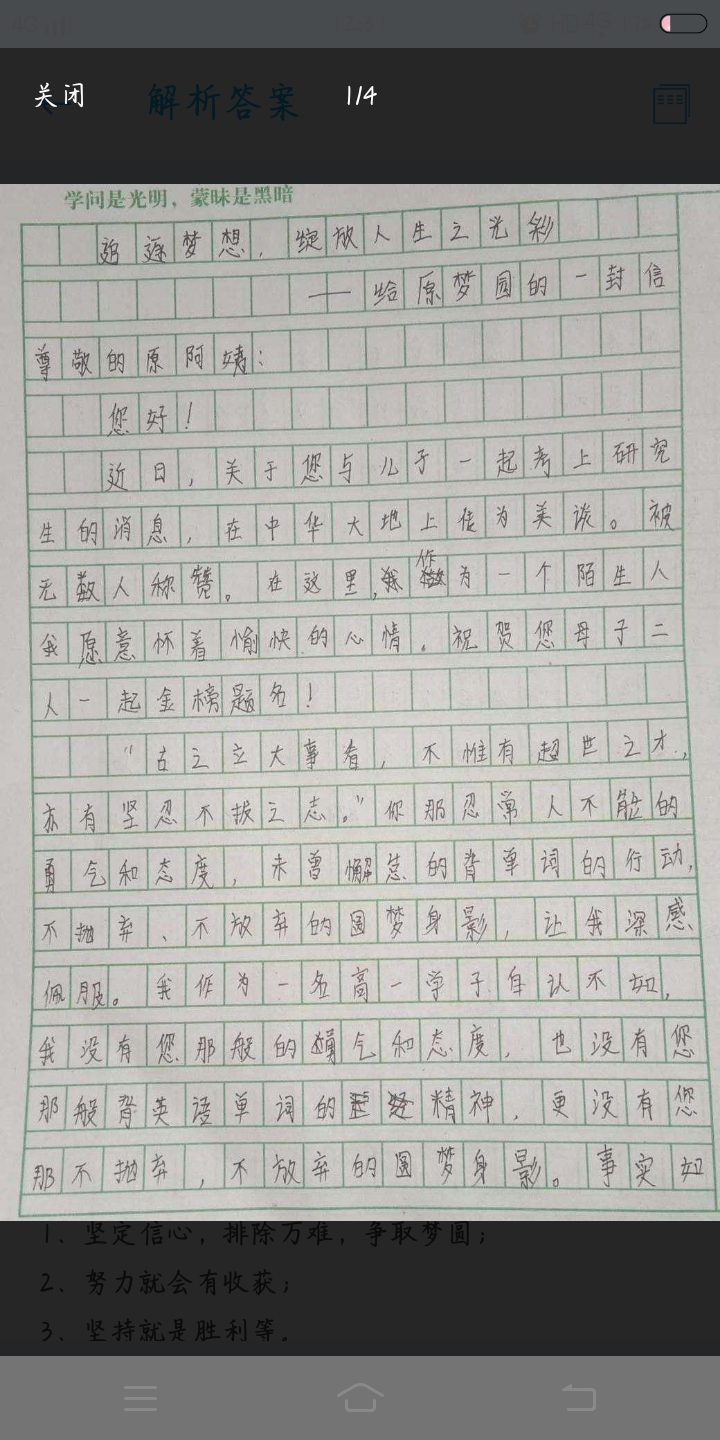 关闭 解析答案 1/4
学问是光明，蒙昧是黑暗
追逐梦想，绽放人生之光彩
——给原梦园的一封信
尊敬的原阿姨：
您好！
近日，关于您与儿子一起考上研究
生的消息，在中华大地上传为美谈。被
无数人称赞。在这里，作为一个陌生人
我愿意怀着愉快的心情。祝贺您母子二
人一起金榜题名！
“古之立大事者，不惟有超世之才，
亦有坚忍不拔之志。”你那忍常人不能的
勇气和态度，未曾懈怠的背单词的行动，
不抛弃、不放弃的圆梦身影，让我深感
佩服。我作为一名高一学子自认不如，
我没有您那般的勇气和态度，也没有您
那般背英语单词的精神，更没有您
那不抛弃，不放弃的圆梦身影。事实如
1、坚定信心，排除万难，争取梦圆；
2、努力就会有收获；
3、坚持就是胜利等。